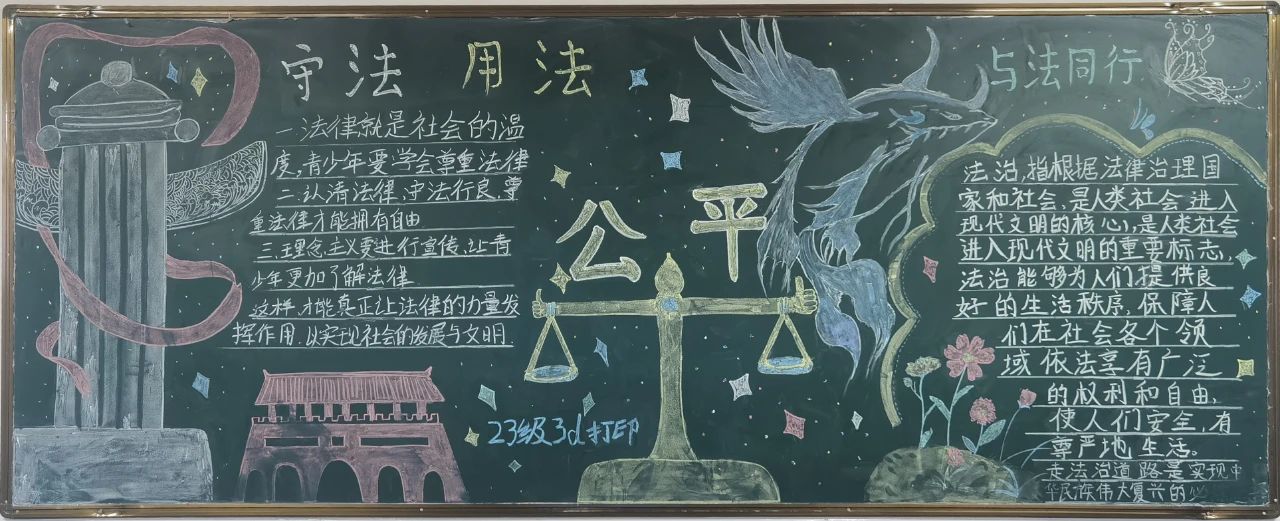 守法 用法
与法同行
一.法律就是社会的温
度,青少年要学会尊重法律
二.认清法律、守法行良,尊
重法律才能拥有自由
三.王理念.主义要进行宣传、让青
少年更加了解法律
这样,才能真正让法律的力量发
挥作用.以实现社会的发展与文明
公平
23级3d打印
法治,指根据法律治理国
家和社会,是人类社会进入
现代文明的核心,是人类社会
进入现代文明的重要标志,
法治能够为人们提供良
好的生活秩序,保障人
们在社会各个领
域依法享有广泛
的权利和自由,
使人们安全,有
尊严地生活。
走法治道路是实现中
华民族伟大复兴的必